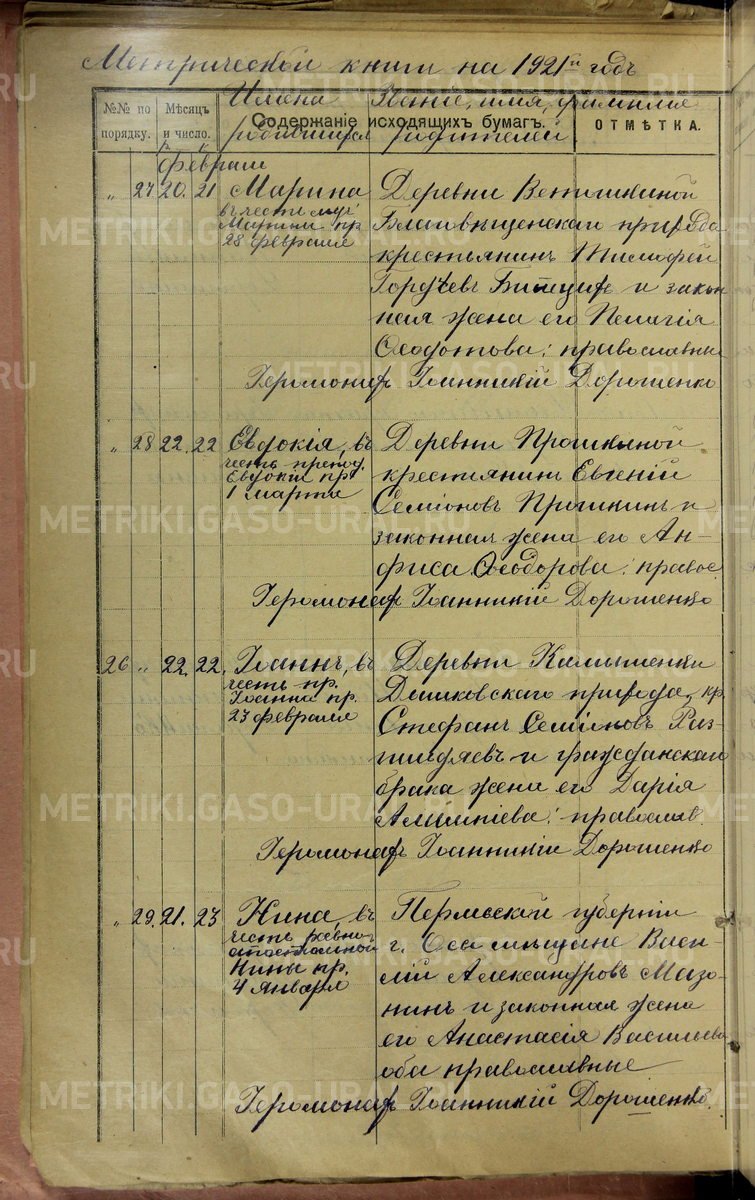 Метрической книги на 1921й годъ
№№ по порядку.
Мѣсяцъ и число.
Содержаніе исходящихъ бумагъ.
ОТМѢТКА.
Имена родившихся
Званіе, имя, фамилия родителей
Февраля
" 27 20. 21 Марина
въ честь муч.
Марины пр.
28 февраля
Деревни
Благовѣщенскаго прихода
крестьянинъ Тимофей
и закон
ная жена его Пелагія
Ѳеодотова: православны
Іеромонах Іоанникій Дорошенко
" 28 22. 22 Евдокія, въ
честь препод.
Евдокіи пр.
1 марта
Деревни Прошкиной
крестиянинъ Евгеній
Семіоновъ Прошкинъ и
законная жена его Ан-
фиса Ѳеодорова: правос
Іеромонах Іоанникій Дорошенко
26 " 22. 22. Іоаннъ, въ
честь пр.
Іоанна пр.
23 февраля
Деревни Камышенки
Дашковскаго прихода, кр.
Стефанъ Семіоновъ Раз-
гильдяевъ и гражданскаго
брака жена его Дарія
православ.
Іеромонах Іоанникій Дорошенко
" 29. 21. 23 Нина, въ
честь равно-
апостольной
Нины пр.
4 Января
Пермской губерніи
г. Оса мѣщане Васи-
лій Александровъ Мазо-
нинъ и законная жена
его Анастасія Васильева
оба православные
Іеромонах Іоанникій Дорошенко.
METRIKI.GASO-URAL.RU